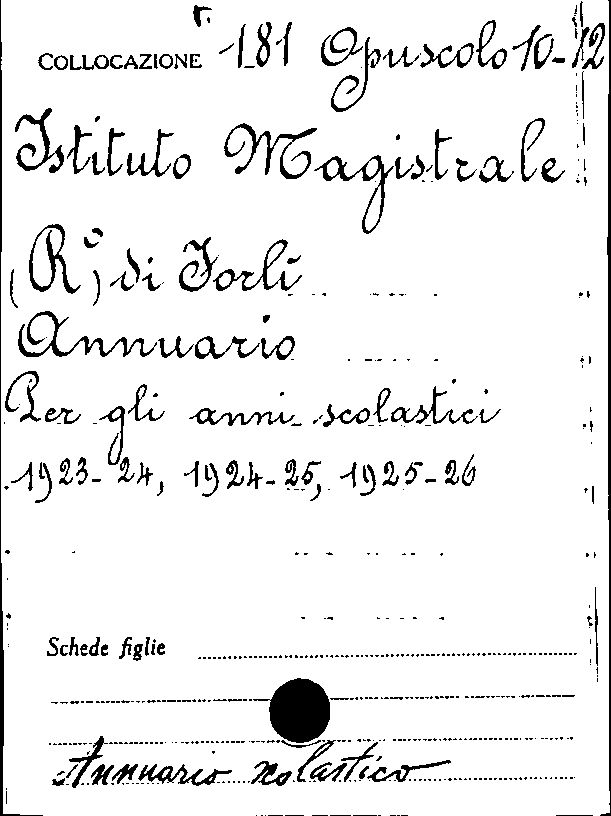 r.
COLLOCAZIONE 181 Opuscolo 10-12
Istituto Magistrale
(R.º) di Forlì
Annuario
Per gli anni scolastici
1923-24, 1924-25, 1925-26
Schede figlie
Annuario scolastico